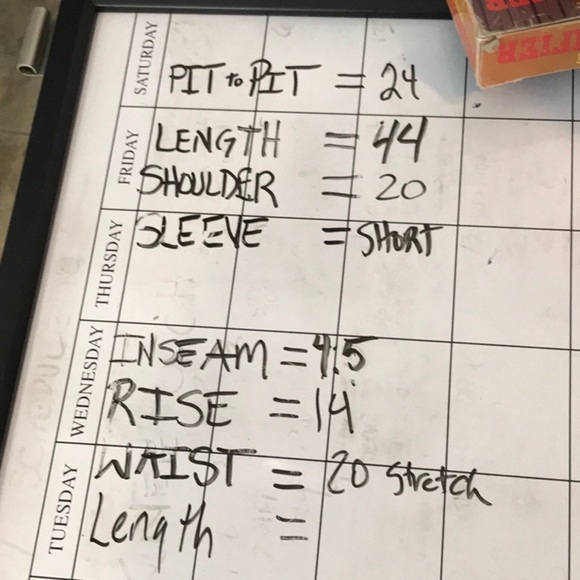 SATURDAY
PIT to PIT = 24
FRIDAY
LENGTH = 44
SHOULDER = 20
THURSDAY
SLEEVE = SHORT
WEDNESDAY
INSEAM = 4.5
RISE = 14
TUESDAY
WAIST = 20 Stretch
Length =